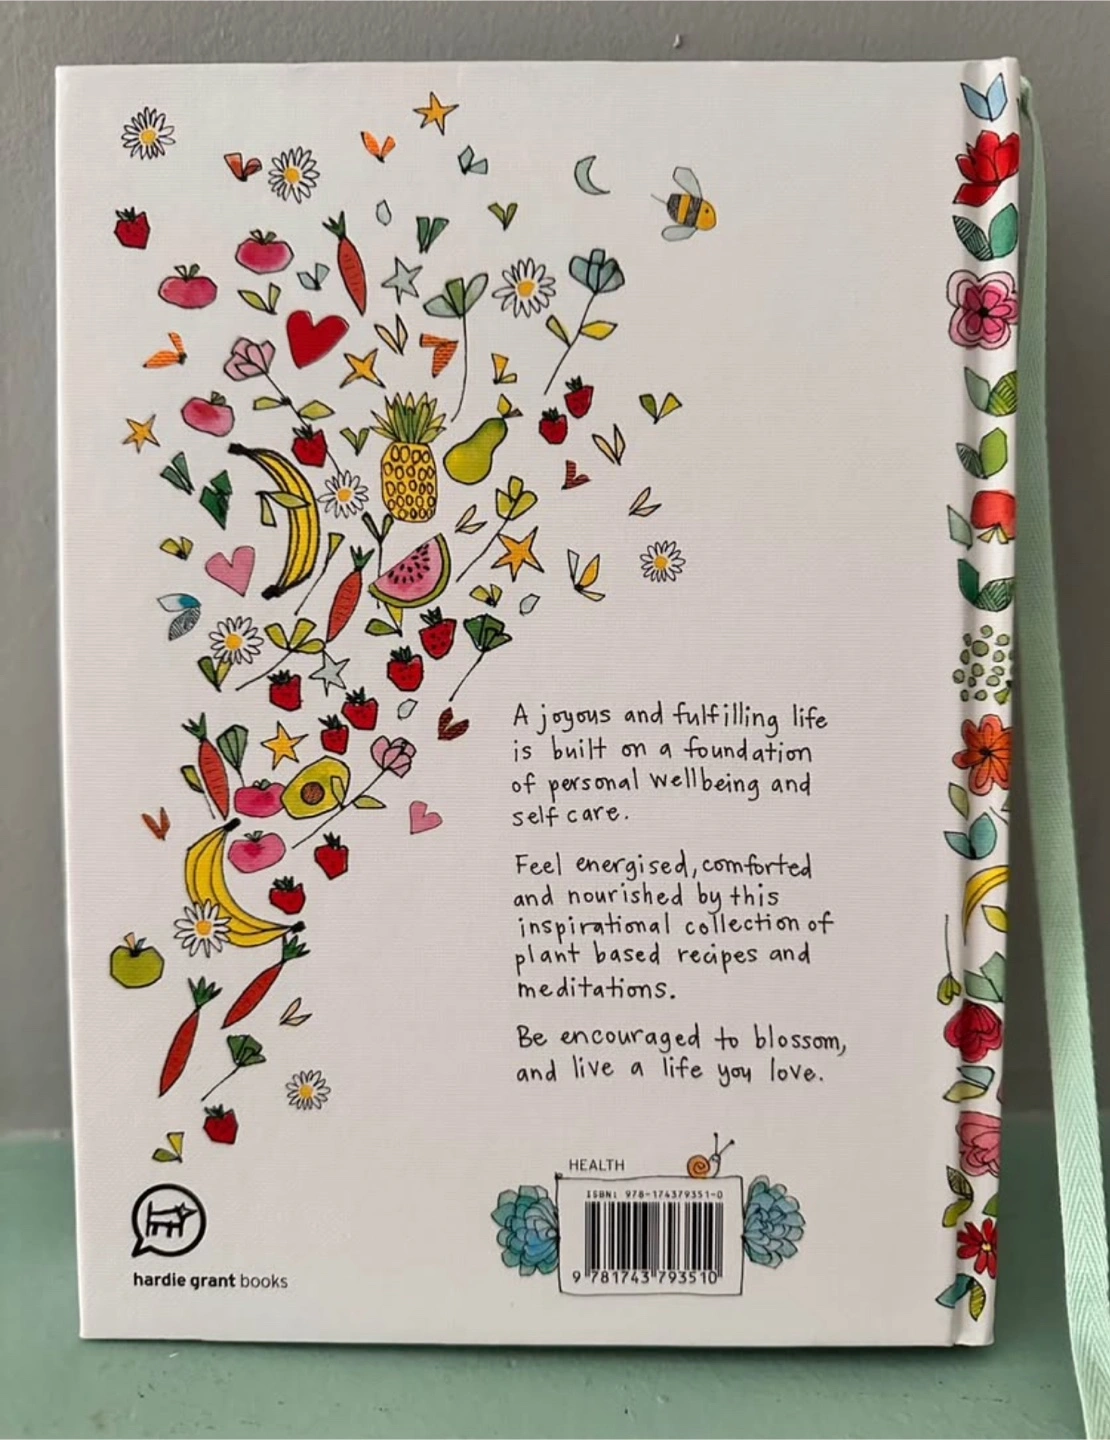 A joyous and fulfilling life
is built on a foundation
of personal wellbeing and
self care.
Feel energised, comforted
and nourished by this
inspirational collection of
plant based recipes and
meditations.
Be encouraged to blossom,
and live a life you love.
HEALTH
ISBN: 978-174379351-0
9 781743 793510
hardie grant books